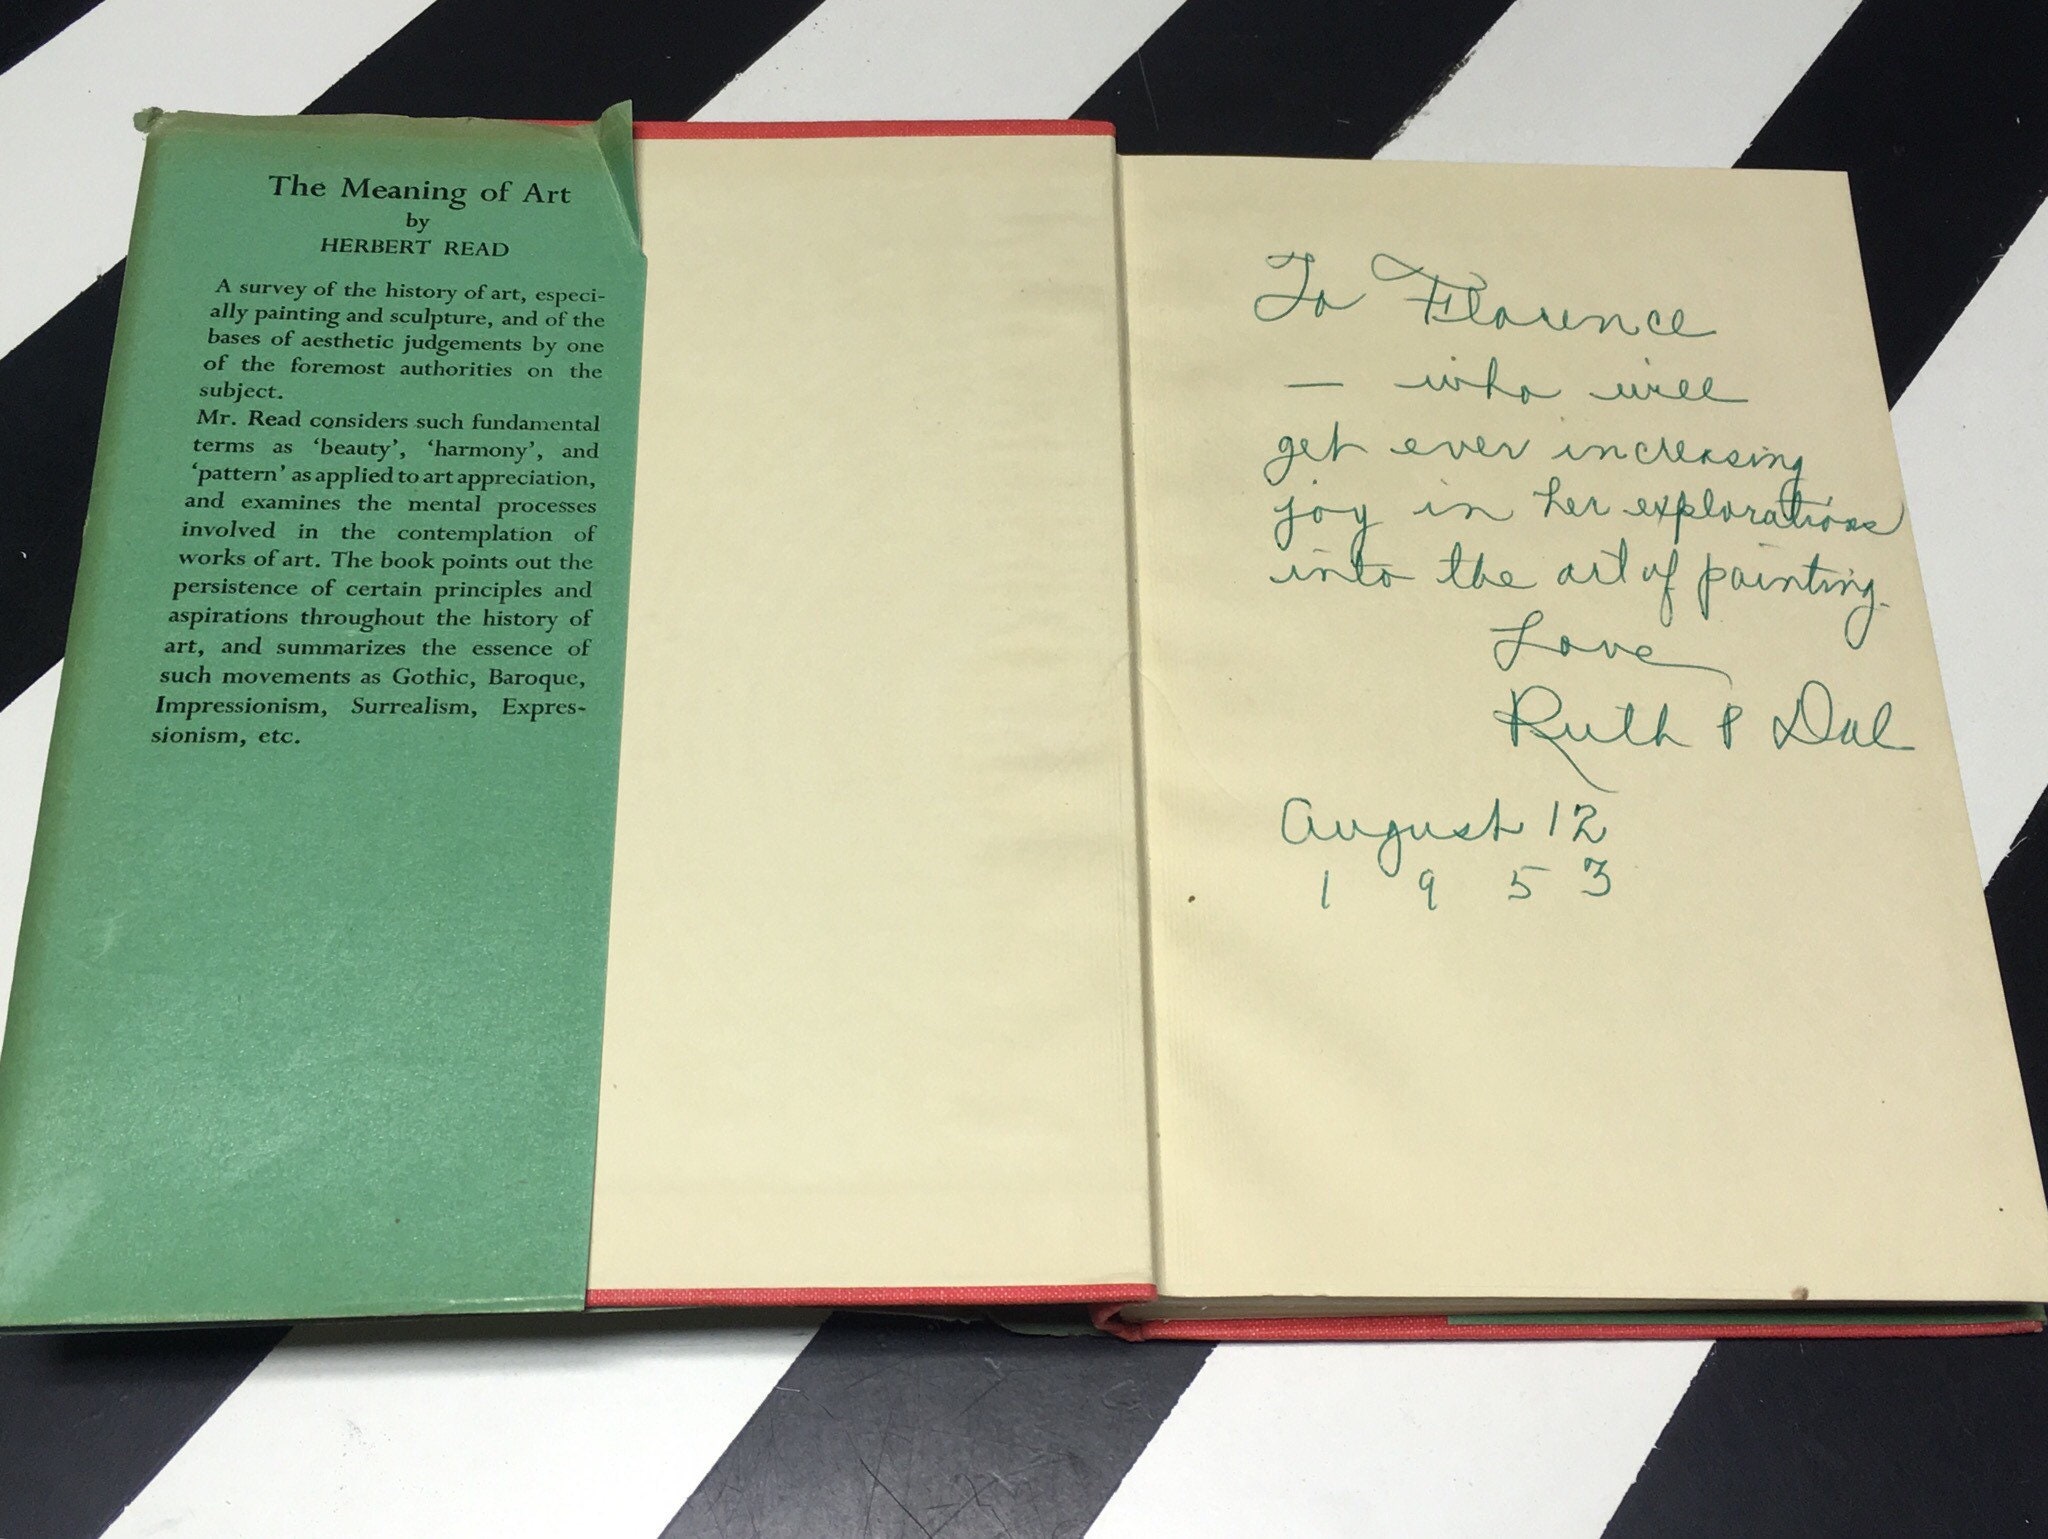 The Meaning of Art
by
HERBERT READ
A survey of the history of art, especi-
ally painting and sculpture, and of the
bases of aesthetic judgements by one
of the foremost authorities on the
subject.
Mr. Read considers such fundamental
terms as ‘beauty’, ‘harmony’, and
‘pattern’ as applied to art appreciation,
and examines the mental processes
involved in the contemplation of
works of art. The book points out the
persistence of certain principles and
aspirations throughout the history of
art, and summarizes the essence of
such movements as Gothic, Baroque,
Impressionism, Surrealism, Expres-
sionism, etc.
To Florence
— who will
get ever increasing
joy in her explorations
into the art of painting.
Love
Ruth & Dal
August 12
1953